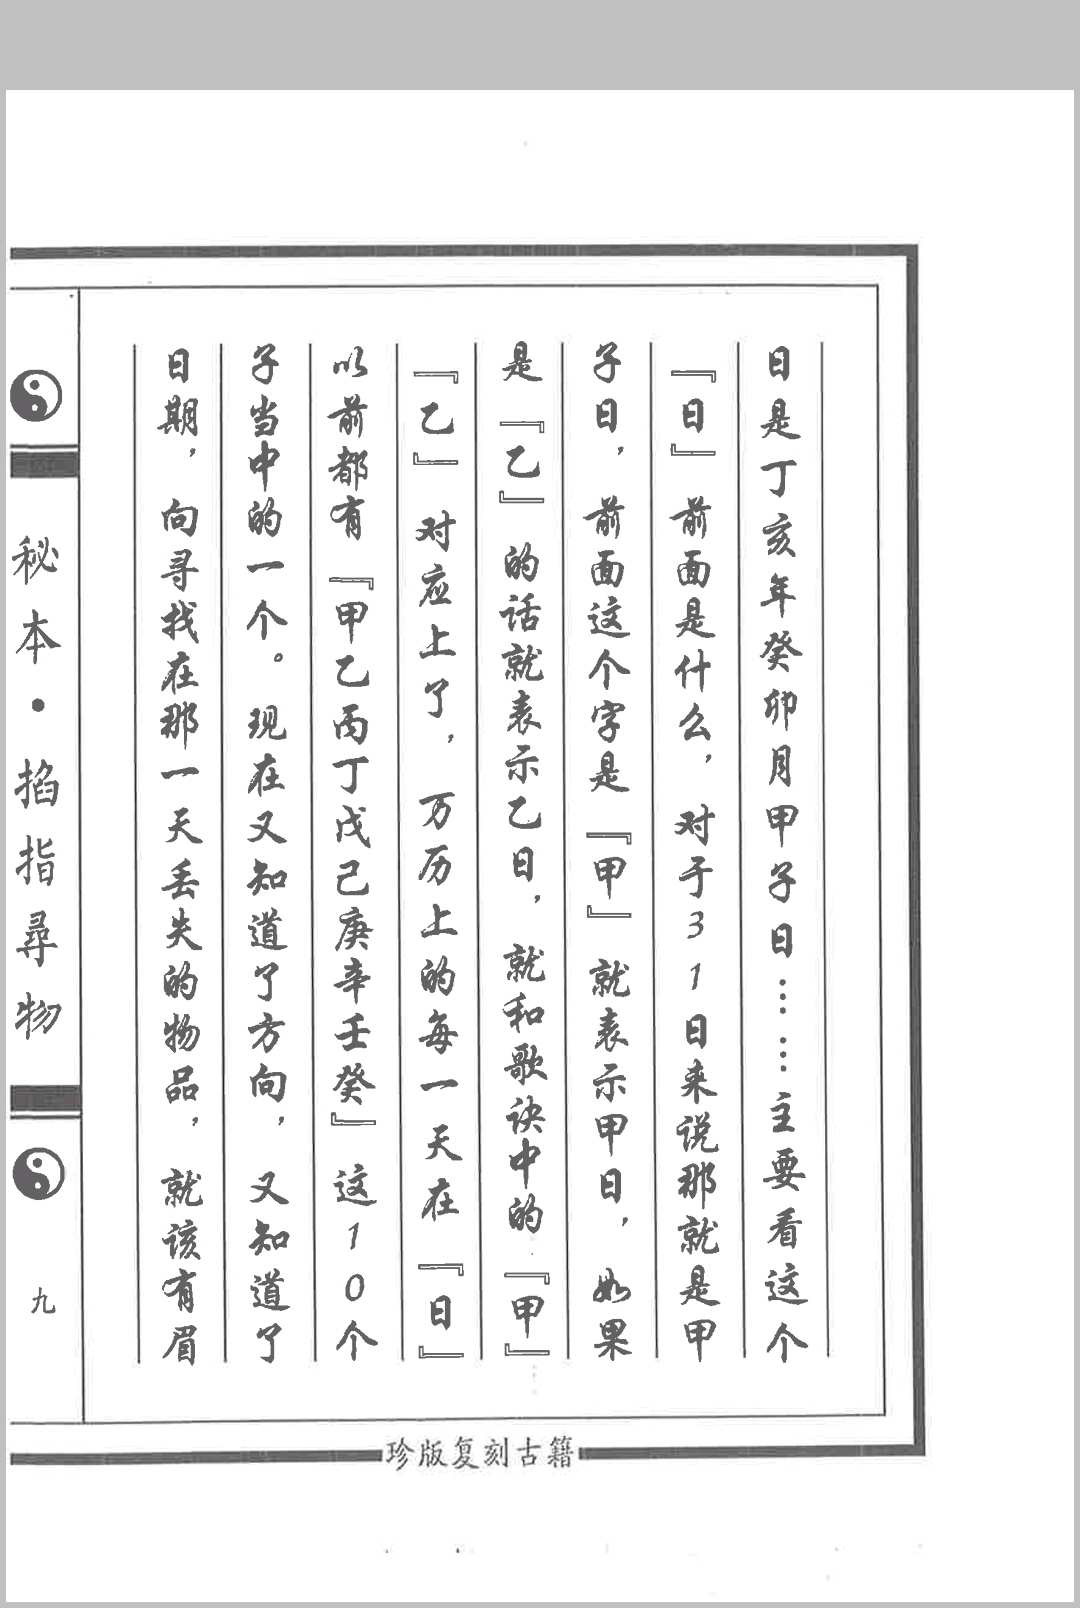 日是丁亥年癸卯月甲子日……主要看这个
『日』前面是什么，对于31日来说那就是甲
子日，前面这个字是『甲』就表示甲日，如果
是『乙』的话就表示乙日，就和歌诀中的『甲』
『乙』对应上了，万历上的每一天在『日』
以前都有『甲乙丙丁戊己庚辛壬癸』这10个
子当中的一个。现在又知道了方向，又知道了
日期，向寻找在那一天丢失的物品，就该有眉
秘本·掐指尋物
九
珍版复刻古籍